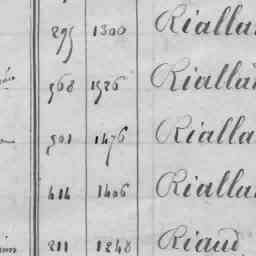 295 1300 Rialla
568 1526 Rialla
501 1476 Rialla
414 1406 Rialla
211 1248 Riaud